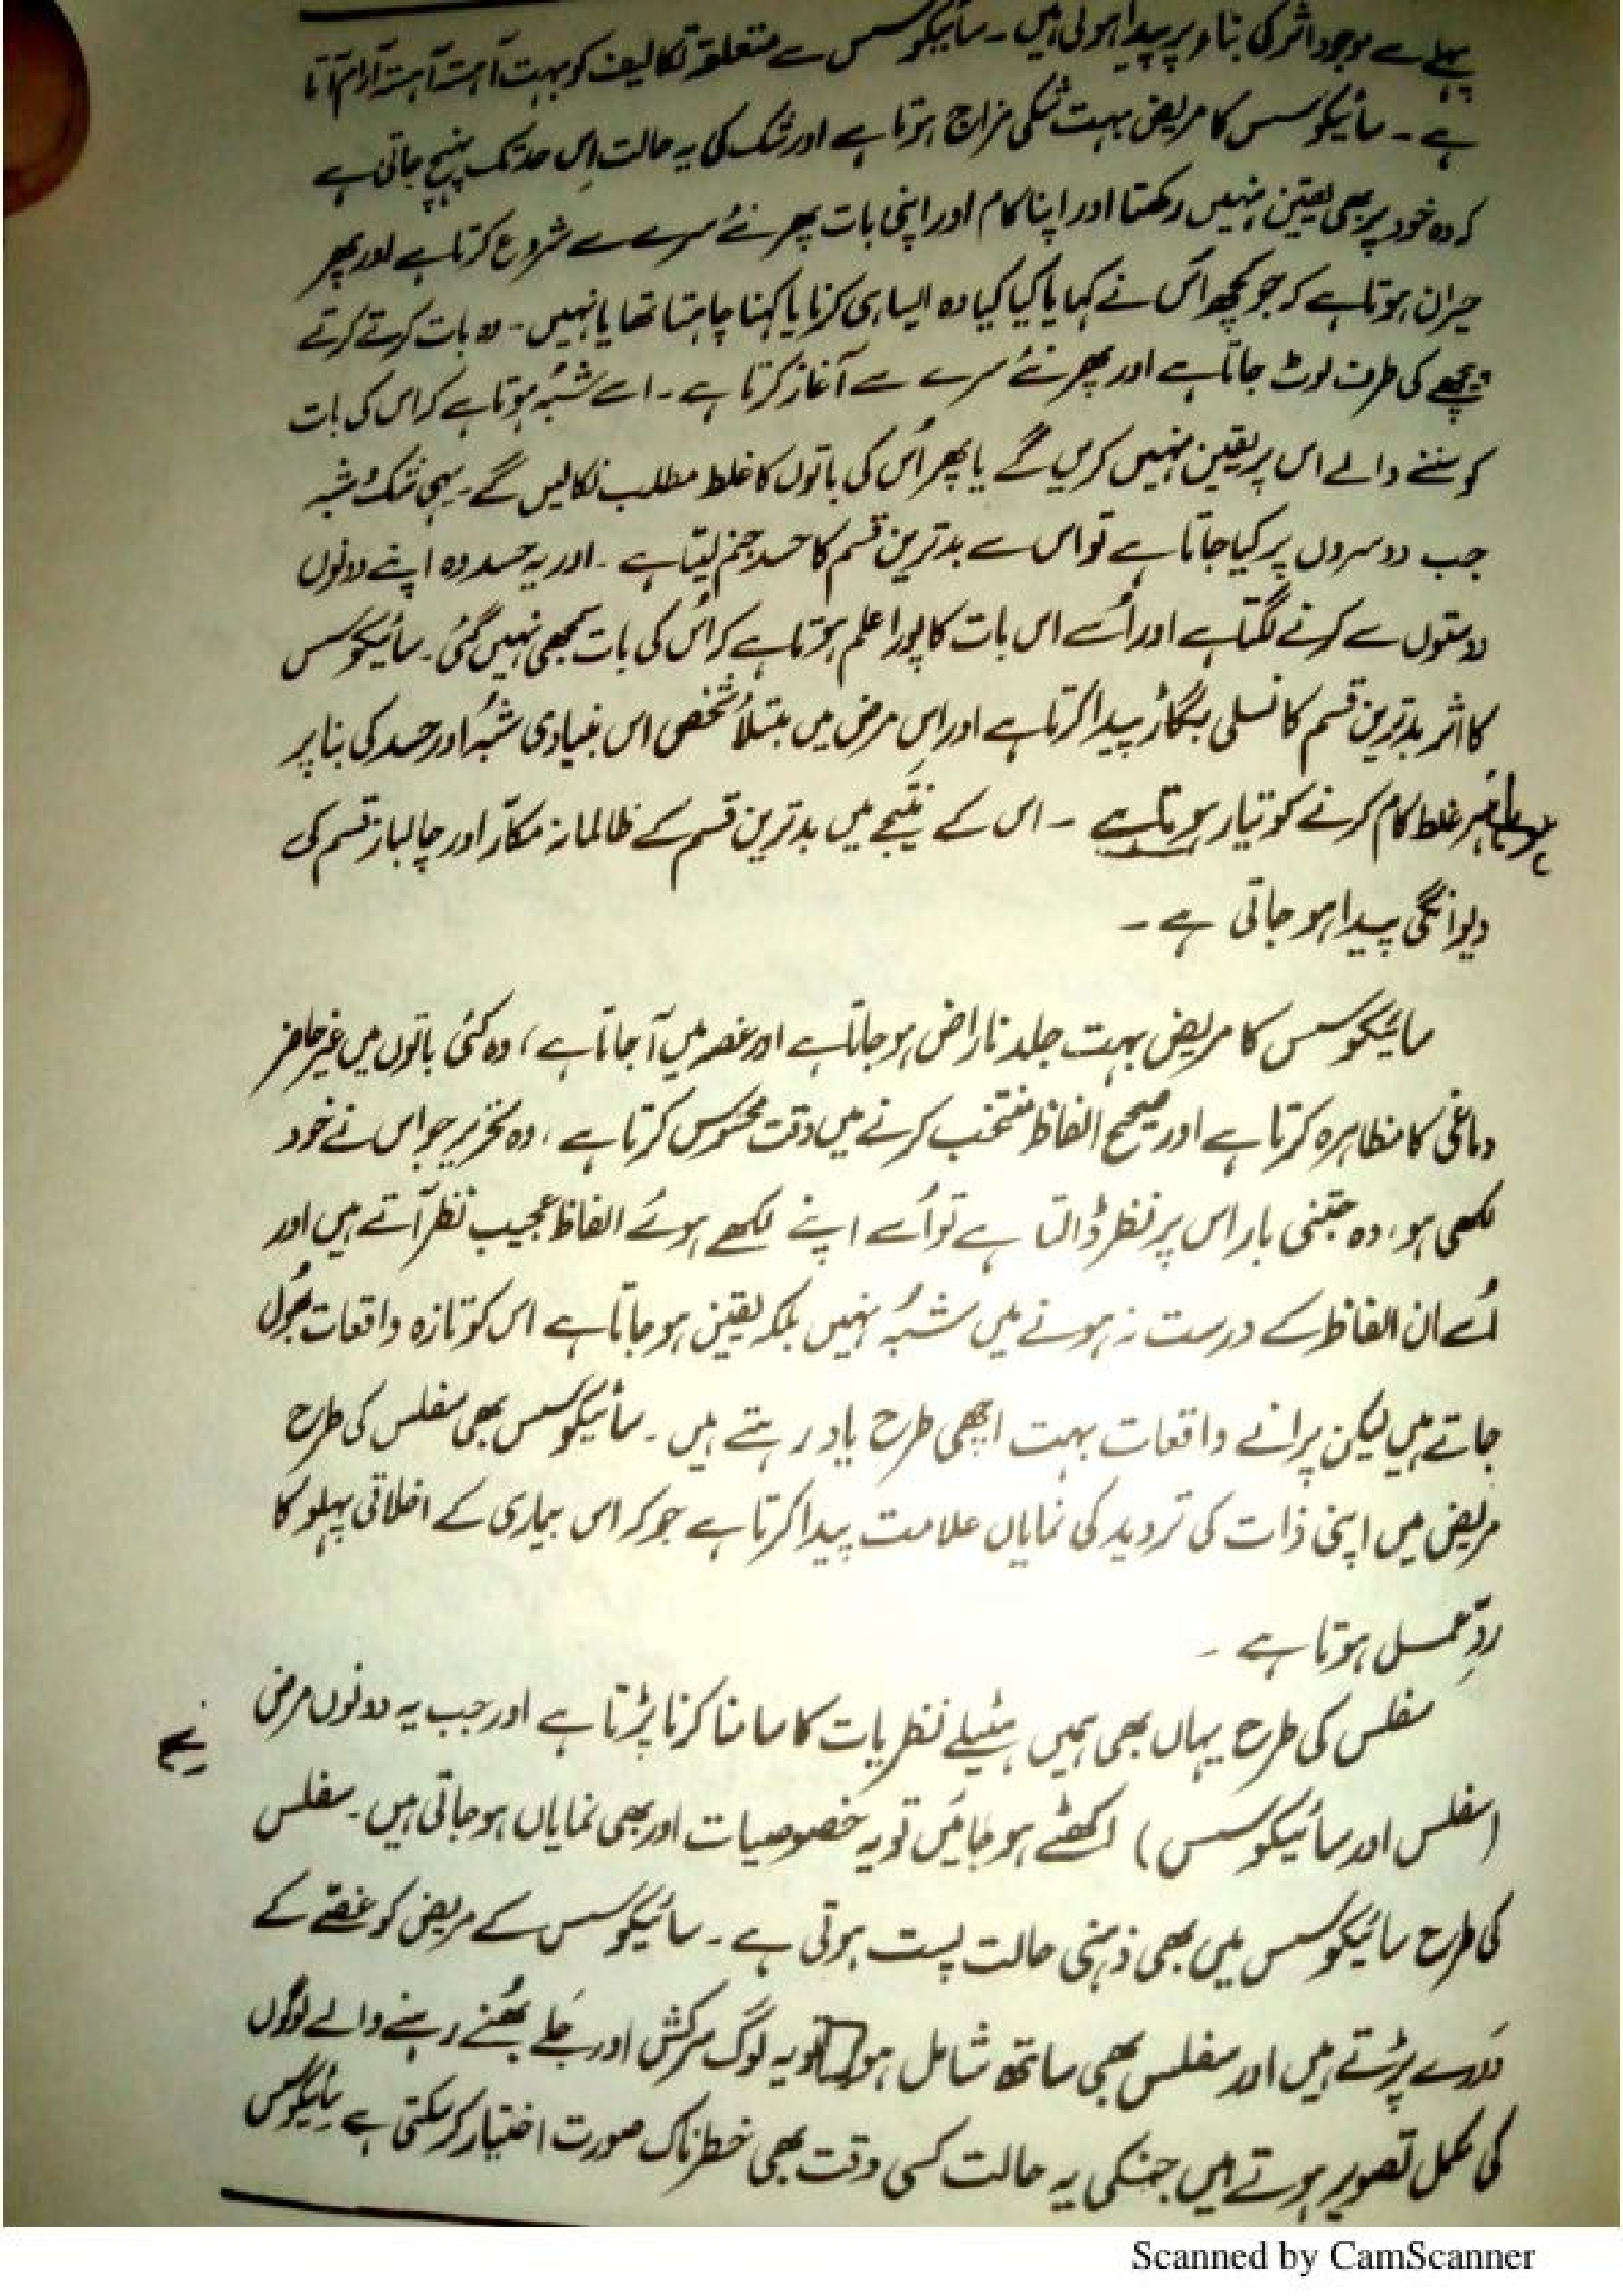 پہلے سے موجود اثر کی بناء پر پیدا ہوتی ہیں ۔ سائیکوسس سے متعلقہ تکالیف کو بہت آہستہ آہستہ آرام آتا
ہے ۔ سائیکوسس کا مریض بہت شکی مزاج ہوتا ہے اور شک کی یہ حالت اِس حد تک پہنچ جاتی ہے
کہ وہ خود پر بھی یقین نہیں رکھتا اور اپنا کام اور اپنی بات پھر نئے سرے سے شروع کرتا ہے اور پھر
حیران ہوتا ہے کہ جو کچھ اُس نے کہا یا کیا کیا وہ ایسا ہی کرنا یا کہنا چاہتا تھا یا نہیں ۔ وہ بات کرتے کرتے
پیچھے کی طرف لوٹ جاتا ہے اور پھر نئے سرے سے آغاز کرتا ہے ۔ اسے شبہُ ہوتا ہے کہ اس کی بات
کو سننے والے اس پر یقین نہیں کریں گے یا پھر اُس کی باتوں کا غلط مطلب نکالیں گے ۔ یہی شک و شبہ
جب دوسروں پر کیا جاتا ہے تو اس سے بدترین قسم کا حسد جنم لیتا ہے ۔ اور یہ حسد وہ اپنے دونوں
دوستوں سے کرنے لگتا ہے اور اُسے اس بات کا پورا علم ہوتا ہے کہ اُس کی بات سمجھی نہیں گئی ۔ سائیکوسس
کا اثر بدترین قسم کا نسلی بگاڑ پیدا کرتا ہے اور اِس مرض میں مبتلاُ شخص اس بنیادی شبہُ اور حسد کی بنا پر
ہر غلط کام کرنے کو تیار ہوتا ہے ۔ اس کے نتیجے میں بدترین قسم کے ظالمانہ مکاّر اور چالباز قسم کی
دیوانگی پیدا ہو جاتی ہے ۔
سائیکوسس کا مریض بہت جلد ناراض ہو جاتا ہے اور غصہ میں آ جاتا ہے ، وہ کئی باتوں میں غیر حاضر
دماغی کا مظاہرہ کرتا ہے اور صحیح الفاظ منتخب کرنے میں دقت محسوس کرتا ہے ، وہ تحریر جو اس نے خود
لکھی ہو ، وہ جتنی بار اس پر نظر ڈالتا ہے تو اُسے اپنے لکھے ہوئے الفاظ عجیب نظر آتے ہیں اور
اُسے ان الفاظ کے درست نہ ہونے میں شبہُ نہیں بلکہ یقین ہو جاتا ہے اس کو تازہ واقعات بھُول
جاتے ہیں لیکن پرانے واقعات بہت اچھی طرح یاد رہتے ہیں ۔ سائیکوسس بھی سفلس کی طرح
مریض میں اپنی ذات کی تردید کی نمایاں علامت پیدا کرتا ہے جو کہ اس بیماری کے اخلاقی پہلو کا
ردِّ عمل ہوتا ہے ۔
سفلس کی طرح یہاں بھی ہمیں ہٹیلے نظریات کا سامنا کرنا پڑتا ہے اور جب یہ دونوں مرض
(سفلس اور سائیکوسس) اکٹھے ہو جائیں تو یہ خصوصیات اور بھی نمایاں ہو جاتی ہیں ۔ سفلس
کی طرح سائیکوسس میں بھی ذہنی حالت پست ہوتی ہے ۔ سائیکوسس کے مریض کو غصّے کے
دَورے پڑتے ہیں اور سفلس بھی ساتھ شامل ہو تو یہ لوگ سرکش اور جَلے بھُنے رہنے والے لوگوں
کی مکمل تصویر ہوتے ہیں جنکی یہ حالت کسی وقت بھی خطرناک صورت اختیار کر سکتی ہے سائیکوسس
Scanned by CamScanner